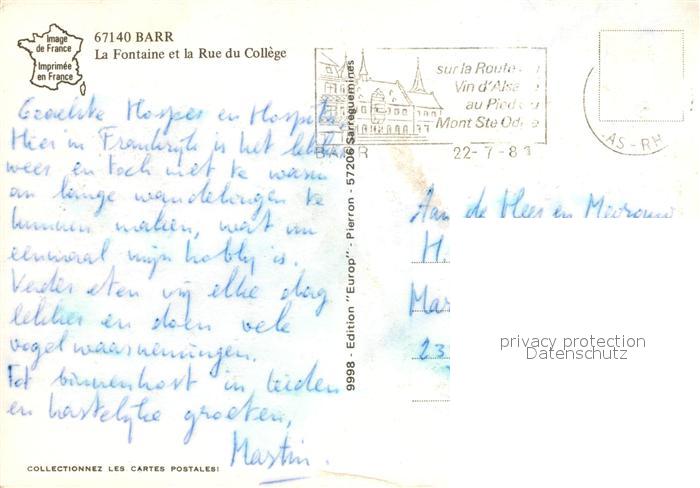 Image
de France
Imprimée
en France
67140 BARR
La Fontaine et la Rue du Collège
sur la Route
Vin d'Alsace
au Pied du
Mont Ste Odile
BARR
22-7-81
AS-RH
Geachte Hospes en Hospita,
Hier in Frankrijk is het lekker
weer en toch niet te warm
om lange wandelingen te
kunnen maken, wat nu
eenmaal mijn hobby is.
Verder eten wij elke dag
lekker en doen vele
vogelwaarnemingen.
Tot binnenkort in Leiden
en hartelijke groeten,
Martin.
Aan de Heer en Mevrouw
H.
Mar
23
9998 - Edition "Europ" - Pierron - 57206 Sarreguemines
COLLECTIONNEZ LES CARTES POSTALES!
privacy protection
Datenschutz